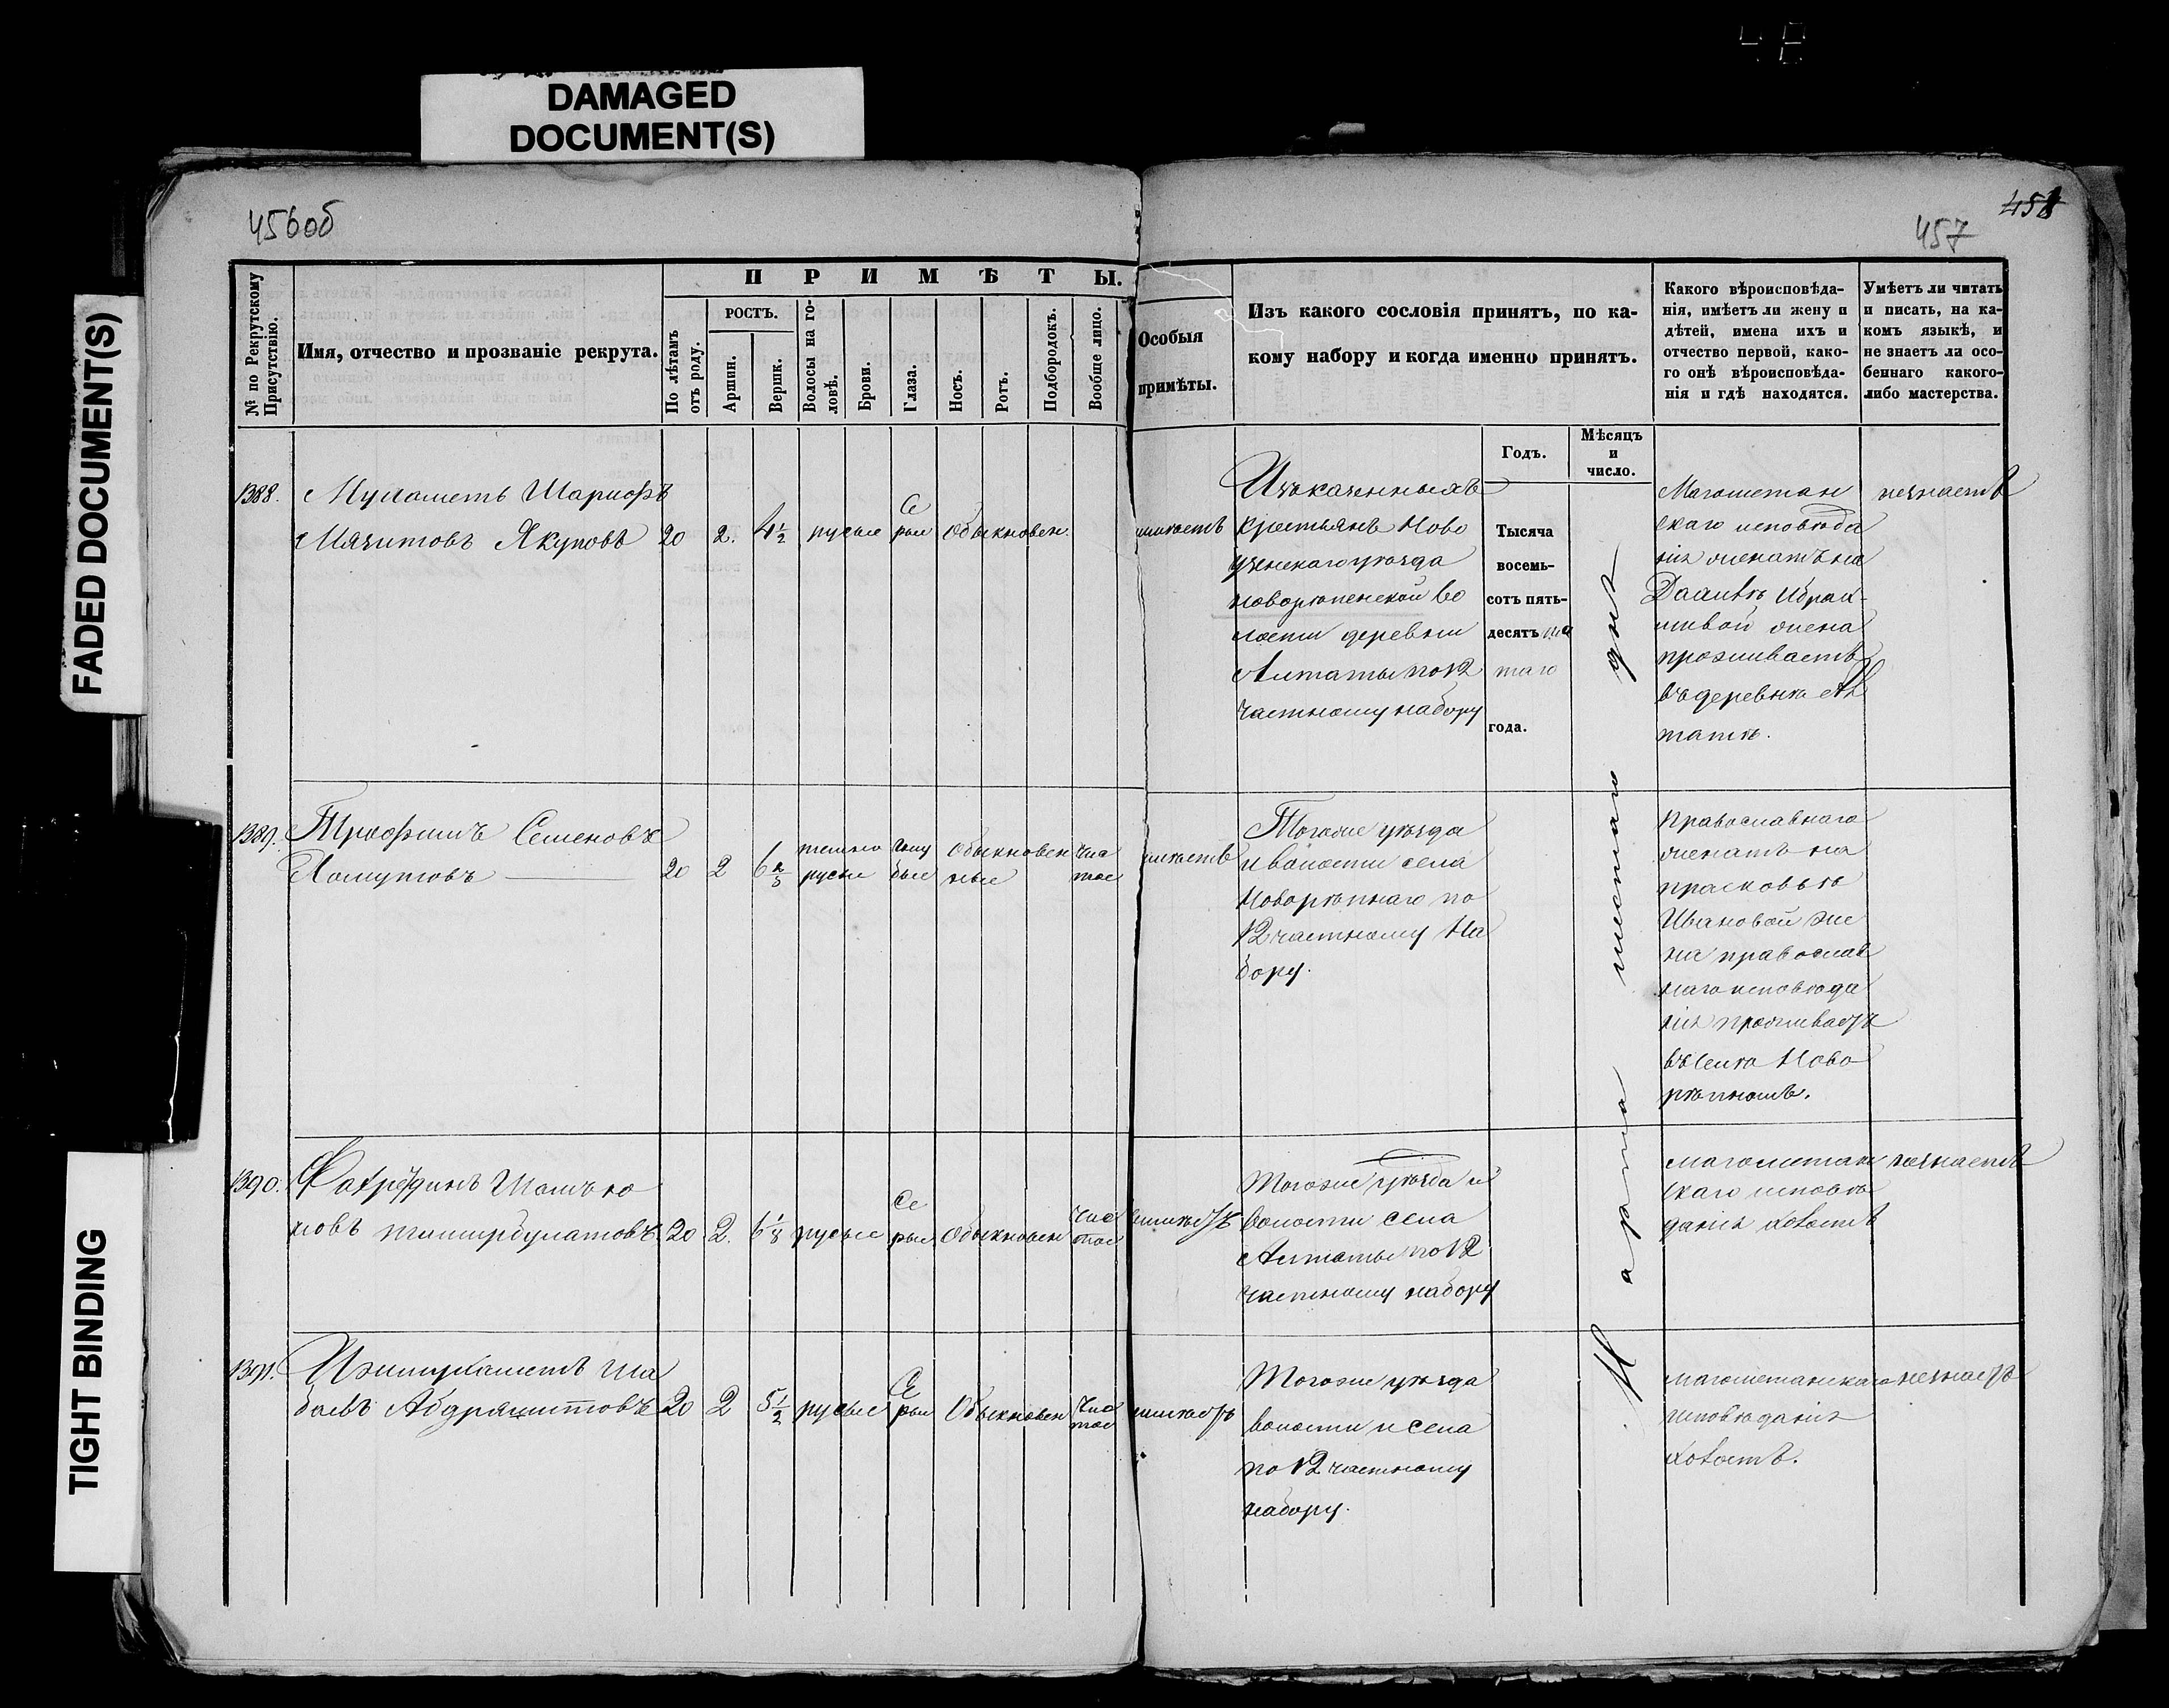 DAMAGED
DOCUMENT(S)
FADED DOCUMENT(S)
TIGHT BINDING
456об
457
№ по Рекрутскому
Присутствію.
Имя, отчество и прозваніе рекрута.
По лѣтамъ
отъ роду.
ПРИМѢТЫ.
РОСТЪ.
Аршин.
Вершк.
Волосы на го-
ловѣ.
Брови.
Глаза.
Носъ.
Ротъ.
Подбородокъ.
Вообще лицо.
Особыя
примѣты.
Изъ какого сословія принятъ, по ка-
кому набору и когда именно принятъ.
Годъ.
Мѣсяцъ
и
число.
Какого вѣроисповѣда-
нія, имѣетъ ли жену и
дѣтей, имена ихъ и
отчество первой, како-
го онѣ вѣроисповѣда-
нія и гдѣ находятся.
Умѣетъ ли читать
и писать, на ка-
комъ языкѣ, и
не знаетъ ли осо-
беннаго какого-
либо мастерства.
1388.
Мухаметъ Шарифъ
Мязитовъ Якуповъ
20 2. 4 1/2 русые
Се
рые
Обыкновен.
неимѣетъ
Изъ казенныхъ
крестьянъ Ново
узенскаго уѣзда
новорѣпенской во
лости деревни
Алтаты по 12
частному набору
Тысяча
восемь-
сотъ пять-
десятъ пя
таго
года.
Марта шестаго дня
Магометан
скаго исповѣда
нія женатъ на
Ибраи-
мовой жена
проживаетъ
въ деревнѣ Ал
татѣ.
незнаетъ
1389.
Трофимъ Семеновъ
Хомутовъ
20 2
темно
русые
голу
бые
Обыкновен
ные
чис
тое
неимѣетъ
Тогоже уѣзда
и волости села
Новорѣпнаго по
12 частному На
бору.
Православнаго
женатъ на
Прасковьѣ
Ивановой же
на православ
наго исповѣда
нія проживаетъ
въ Селѣ Ново
рѣпномъ.
1390.
Фахрѣтдинъ
новъ Тимирбулатовъ
20 2. 6 1/8 русые
Се
рые
Обыкновен
чис
тое
неимѣетъ
Тогоже уѣзда и
волости села
Алтаты по 12
частному набору
магометан
скаго исповѣ
данія холостъ
незнаетъ
1391.
Ишмухаметъ Ша
баевъ Абдряшитовъ
20 2 5 1/2 русые
Се
рые
Обыкновен
чис
тое
неимѣетъ
Тогоже уѣзда
волости и села
по 12 частному
набору.
магометанскаго
исповѣданія
холостъ.
незнаетъ